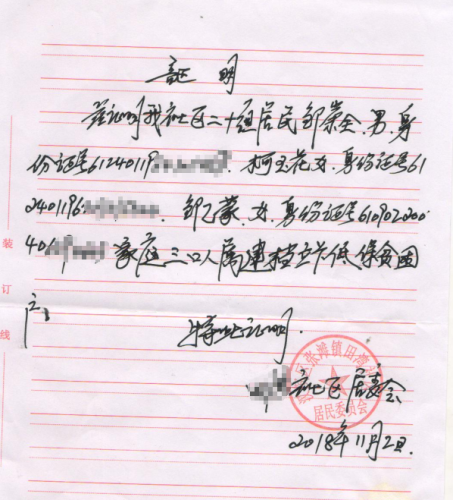 证明
兹证明我社区二十组居民邹崇全,男,身
份证号61240119 柯玉花,女,身份证号61
2401196 邹乙蒙,女,身份证号610902200
406 家庭三口人属建档立卡低保贫困
户,
特此证明.
社区居委会
张滩镇田
居民委员会
2018年11月2日.
装
订
线